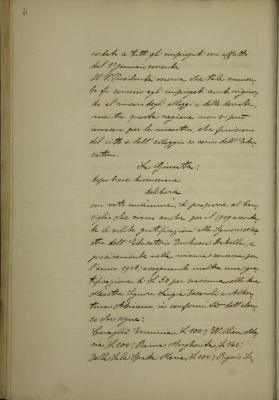 6
cordata a tutti gli impiegati con effetto
del 1° Gennaio corrente.
Il V. Presidente osserva che tale aumen-
to fu concesso agli impiegati avuto riguar-
do al rincaro degli alloggi e delle derrate,
ma tre questa ragione non si può
invocare per le maestre che fruiscono
del vitto e dell'alloggio a carico dell'Edu-
catorio.
La Giunta:
dopo breve discussione
delibera
con voto unanime, di proporre al Con-
siglio che siano anche per il 1909 accorda-
te le solite gratificazioni alle Signore Mae-
stre dell'Educatorio Duchessa Isabella, e
precisamente nella misura concessa per
l'anno 1908; assegnando inoltre una gra-
tificazione di L. 50 per ciascuna alle due
Maestre Signore Luigia e
Adriana, in conformità dell'elen-
co che segue:
Erminia L. 100; Ma-
ria L. 100; Margherita L. 140;
Dalla Sala Maria, L. 100;